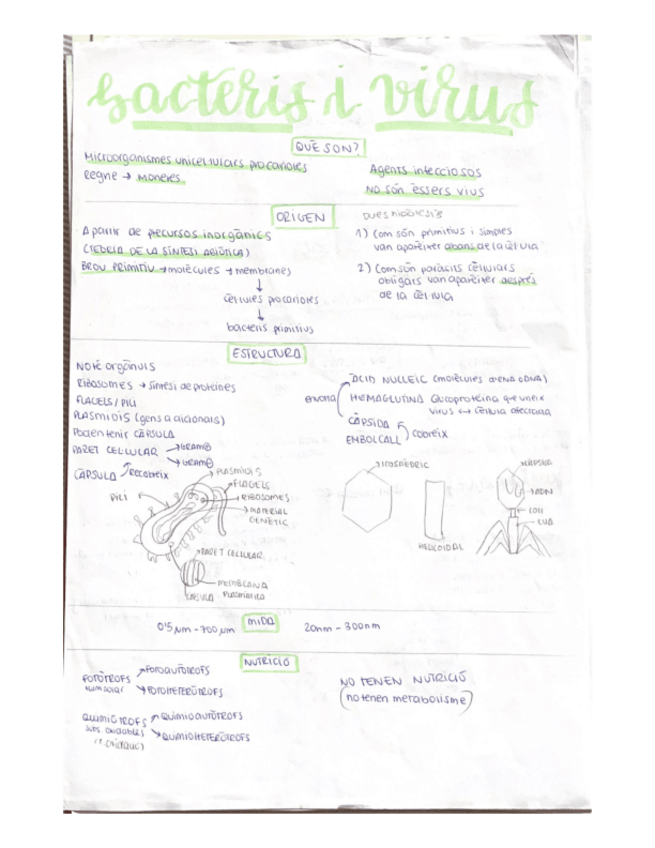 bacteris i virus
QUÈ SON?
Microorganismes unicel·lulars procariotes
Regne → Moneres
Agents infecciosos
NO SÓN ÈSSERS VIUS
ORIGEN
A partir de precursos inorgànics
(TEORIA DE LA SÍNTESI ABIÒTICA)
BROU PRIMITIU → molècules → membranes
↓
cèl·lules procariotes
↓
bacteris primitius
Dues hipòtesis
1) Com són primitius i simples
van aparèixer abans de la cèl·lula
2) Com són paràsits cel·lulars
obligats van aparèixer després
de la cèl·lula
ESTRUCTURA
NO té orgànuls
RIBOSOMES → síntesi de proteïnes
FLAGELS / PILI
PLASMIDIS (gens addicionals)
Poden tenir CÀPSULA
PARET CEL·LULAR → GRAM⊕
→ GRAM⊖
CÀPSULA recobreix
ÀCID NUCLEIC (molècules d'ARN o ADN)
envolta
HEMAGLUTINA Glucoproteïna que uneix
virus ↔ cèl·lula afectada
CÀPSIDA
EMBOLCALL
cobreix
PLASMIDIS
FLAGELS
RIBOSOMES
MATERIAL
GENÈTIC
PILI
PARET CEL·LULAR
MEMBRANA
plasmàtica
CÀPSULA
ICOSAÈDRIC
HELICOIDAL
CÀPSIDA
ADN
COLL
CUA
0'5 µm - 700 µm
MIDA
20nm - 300nm
NUTRICIÓ
FOTÒTROFS
llum solar
FOTOAUTÒTROFS
FOTOHETERÒTROFS
QUIMIÒTROFS
subs. oxidables
QUIMIOAUTÒTROFS
QUIMIOHETERÒTROFS
NO TENEN NUTRICIÓ
(no tenen metabolisme)